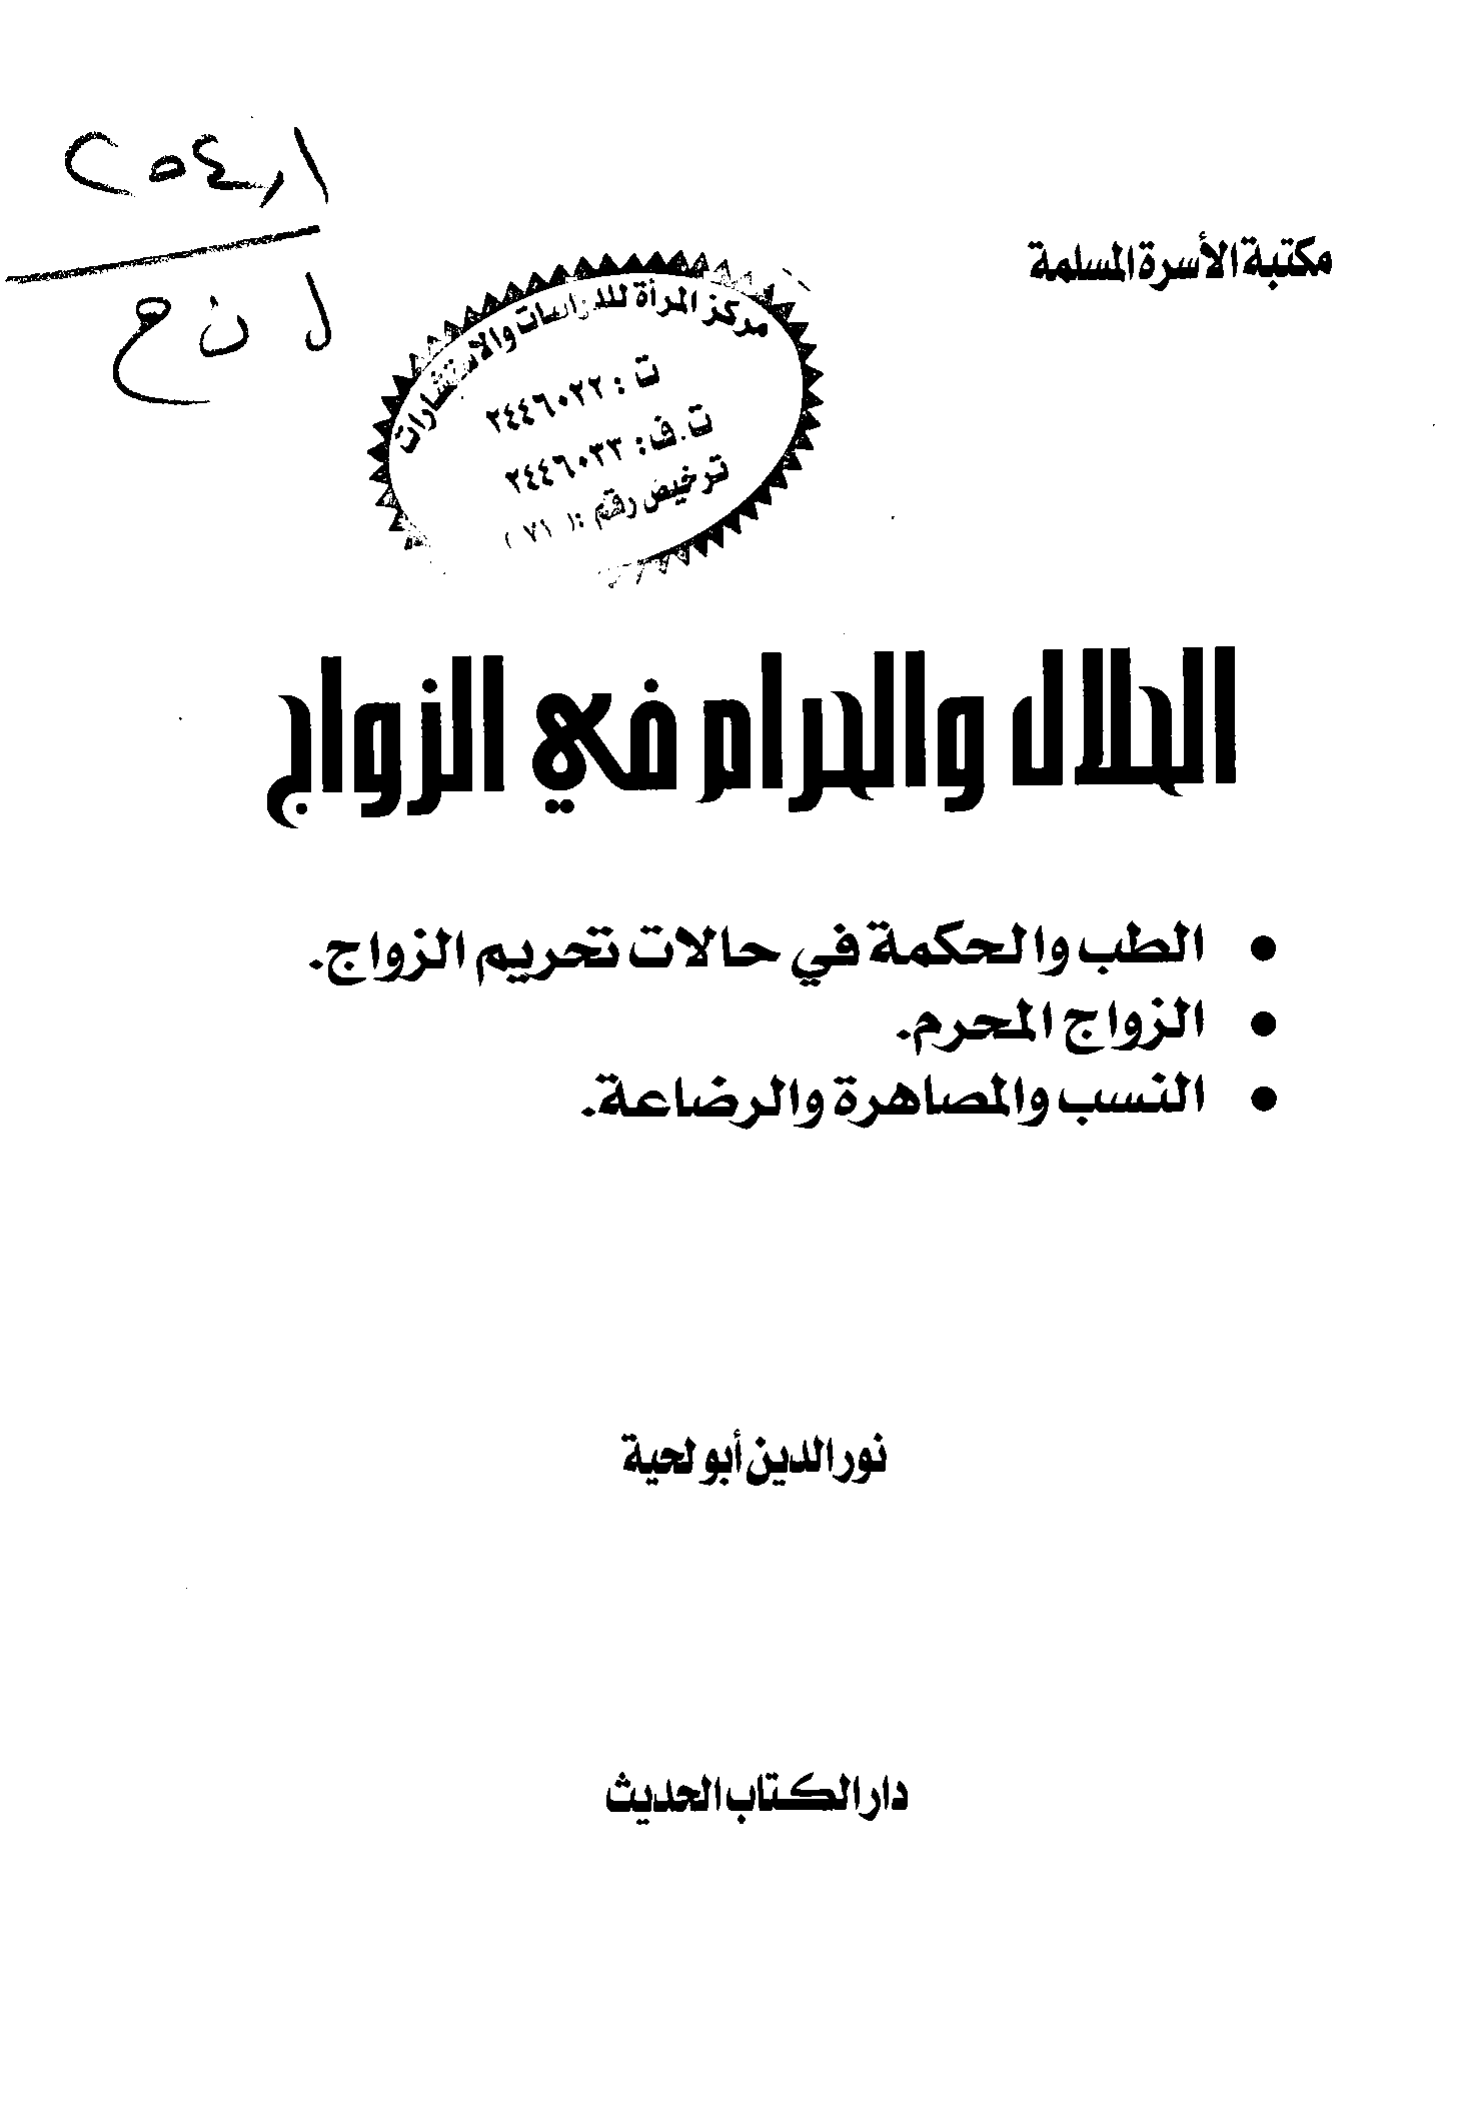 ٢٥٤٫١
ل ن ح
مكتبة الأسرة المسلمة
مركز المرأة للدراسات والاستشارات
ت : ٢٤٤٦٠٢٢
ت.ف: ٢٤٤٦٠٣٣
ترخيص رقم :( ٧١ )
الحلال والحرام في الزواج
• الطب والحكمة في حالات تحريم الزواج.
• الزواج المحرم.
• النسب والمصاهرة والرضاعة.
نور الدين أبو لحية
دار الكتاب الحديث